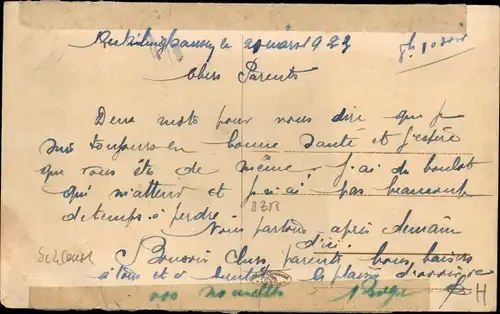 Recklinghausen le 20 mars 1923
Chers Parents
Deux mots pour vous dire que je
suis toujours en bonne santé et j'espère
que vous êtes de même. j'ai du boulot
qui m'attend et j'n'ai pas beaucoup
de temps à perdre.
Nous partons après demain
d'ici.
Bonsoir chers parents bons baisers
à tous et à bientôt le plaisir d'avoir de
vos nouvelles